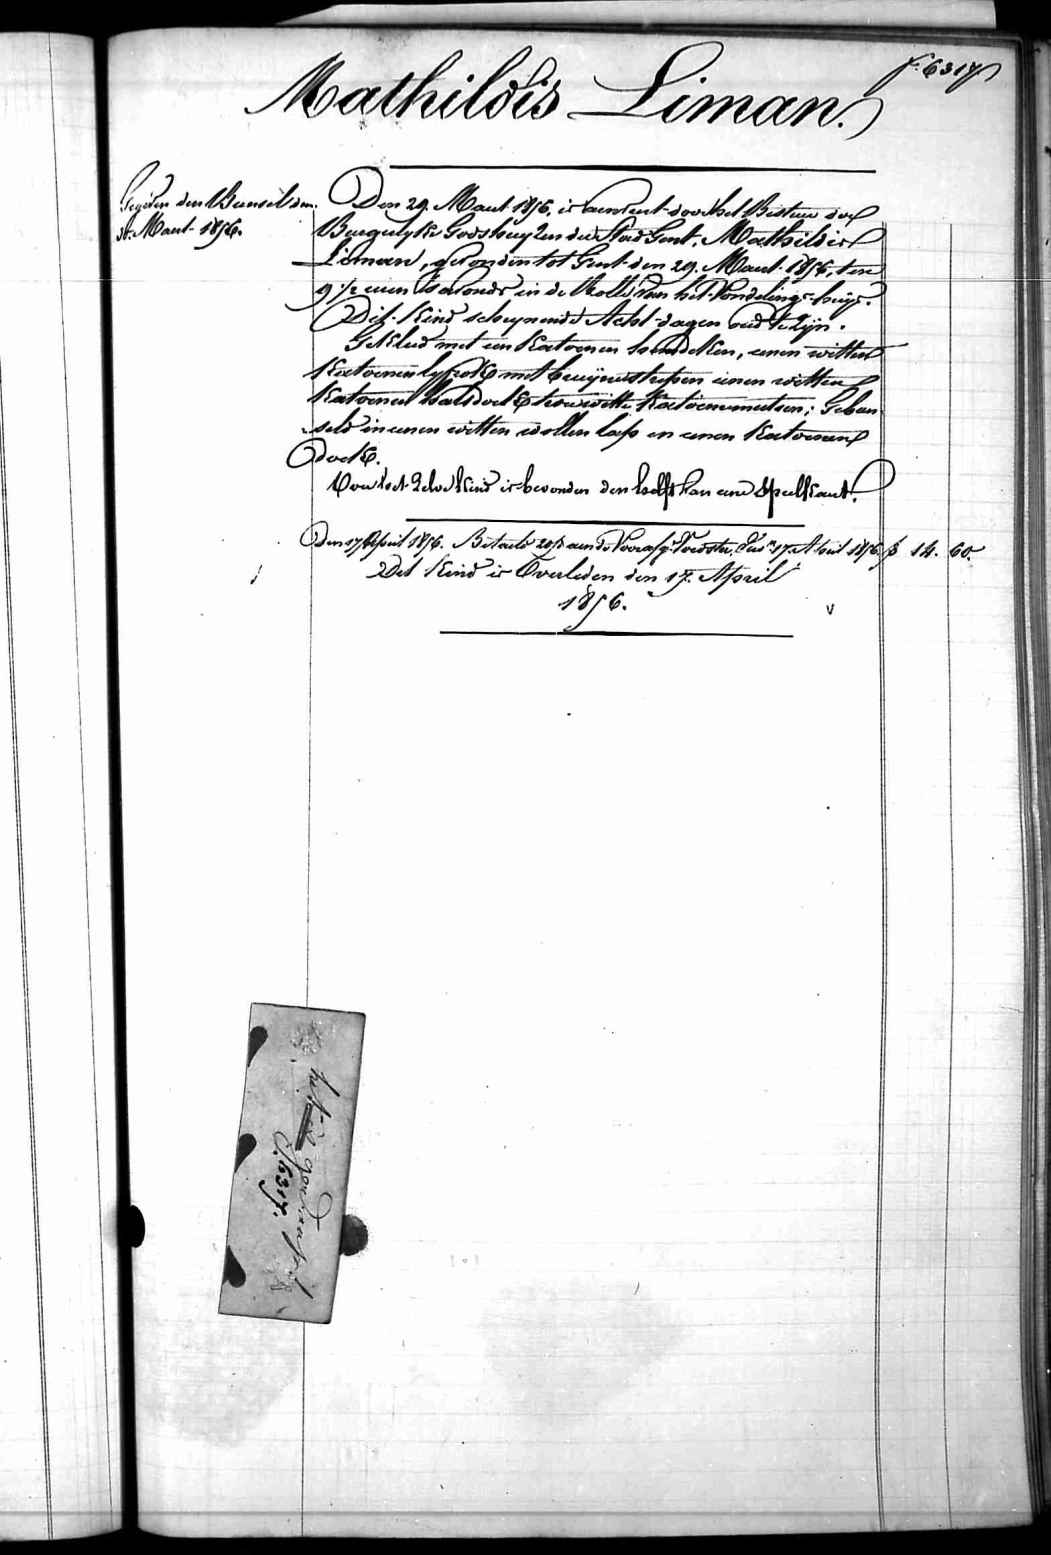 f. 6317
Mathildis Liman.
Gegeven den Bunsel den
31. Maart 1856.
Den 29. Maart 1856, is aenveert door het Bestuer der
Burgerlyke Godshuyzen der Stad Gent, Mathildis
Liman, gevonden tot Gent den 29. Maart 1856, ten
9 1/2 uren 's avonds in de Rolle van het Vondelings-huys.
Dit Kind schynende Acht dagen oud te Zyn.
Gekleed met een Katoenen hemdeken, eenen witten
Katoenen lyfrok met bruyne strepen eenen witten
Katoenen halsdoek twee witte Katoene mutsen; Gebun
seld in eenen witten wollen lap en eenen Katoenen
doek.
Voor het Zelve Kind is bevonden den helft van eene Speelkaart.
Den 17 April 1856. Betaeld aen de Voedster 17. April 1856 14. 60.
Dit Kind is Overleden den 17. April
1856.
6317.